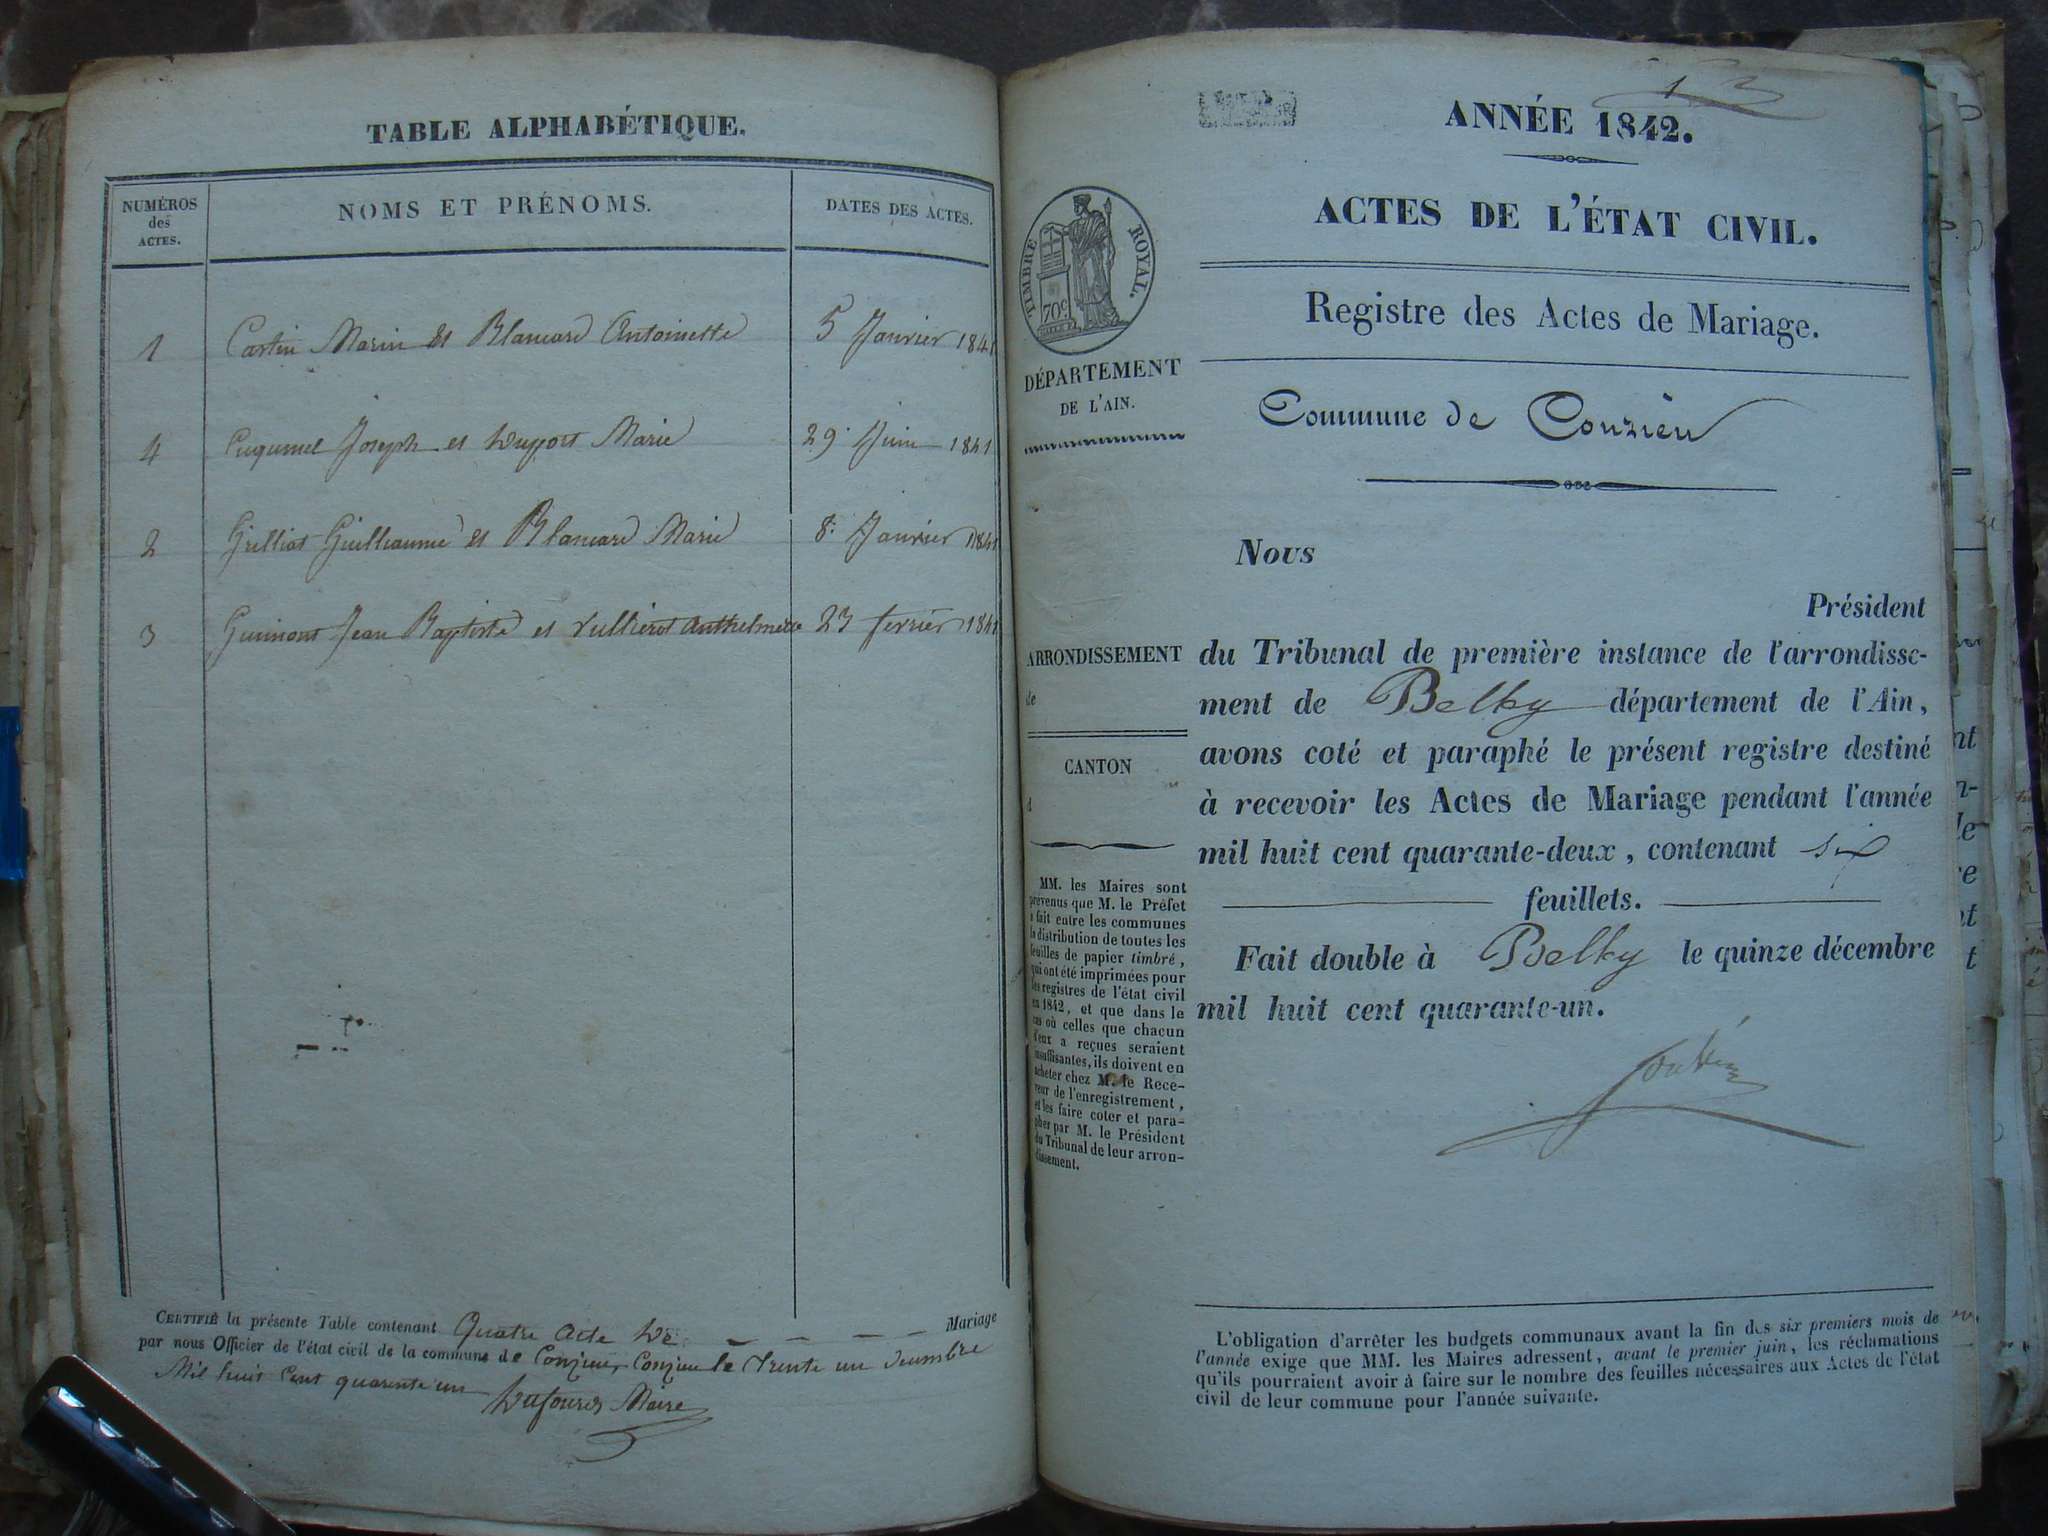 TABLE ALPHABÉTIQUE.
NUMÉROS
des
ACTES.
NOMS ET PRÉNOMS.
DATES DES ACTES.
1 Cartin Marin et Blancard Antoinette 5 Janvier 1841
4 Cuquinel Joseph et Dupont Marie 29 Juin 1841
2 Grilliat Guilliaume et Blancard Marie 8 Janvier 1841
3 Jean Baptiste et Vullierot Anthelmette 23 fevrier 1841
CERTIFIÉ la présente Table contenant Quatre Acte De Mariage
par nous Officier de l'état civil de la commune de Conzieu, Conzieu le Trente un decembre
Mil huit Cent quarente un
Dufours Maire
1
ANNÉE 1842.
ACTES DE L'ÉTAT CIVIL.
Registre des Actes de Mariage.
Commune de Conzieu
TIMBRE ROYAL.
70c
DÉPARTEMENT
DE L'AIN.
ARRONDISSEMENT
de
CANTON
d
MM. les Maires sont
prévenus que M. le Préfet
a fait entre les communes
la distribution de toutes les
feuilles de papier timbré,
qui ont été imprimées pour
les registres de l'état civil
en 1842, et que dans le
cas où celles que chacun
d'eux a reçues seraient
insuffisantes, ils doivent en
acheter chez M. le Rece-
veur de l'enregistrement,
et les faire coter et para-
pher par M. le Président
du Tribunal de leur arron-
dissement.
Nous
Président
du Tribunal de première instance de l'arrondisse-
ment de Belley département de l'Ain,
avons coté et paraphé le présent registre destiné
à recevoir les Actes de Mariage pendant l'année
mil huit cent quarante-deux, contenant six
feuillets.
Fait double à Belley le quinze décembre
mil huit cent quarante-un.
L'obligation d'arrêter les budgets communaux avant la fin des six premiers mois de
l'année exige que MM. les Maires adressent, avant le premier juin, les réclamations
qu'ils pourraient avoir à faire sur le nombre des feuilles nécessaires aux Actes de l'état
civil de leur commune pour l'année suivante.